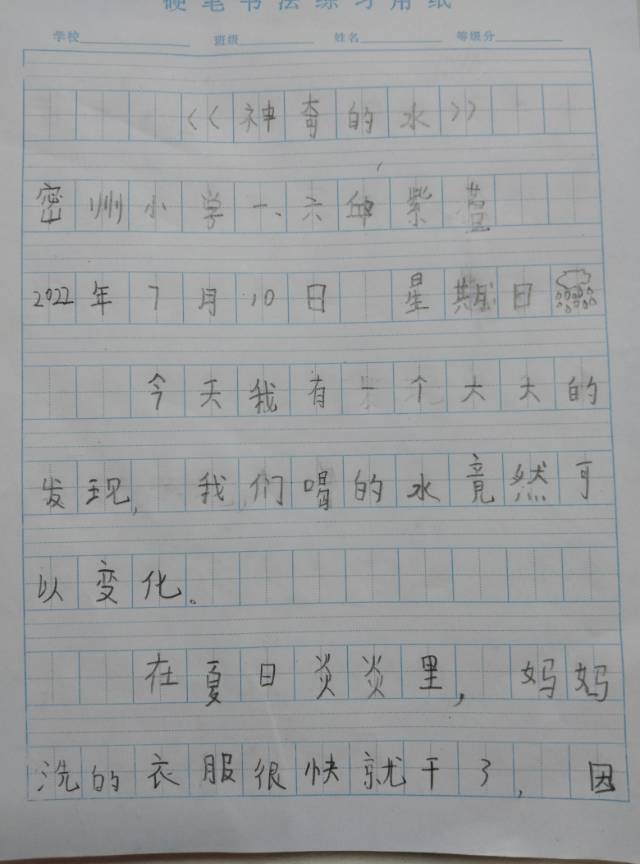 硬笔书法练习用纸
学校 班级 姓名 等级分
《神奇的水》
密州小学一、六邱紫萱
2022年7月10日 星期日
今天我有一个大大的
发现,我们喝的水竟然可
以变化。
在夏日炎炎里,妈妈
洗的衣服很快就干了,因